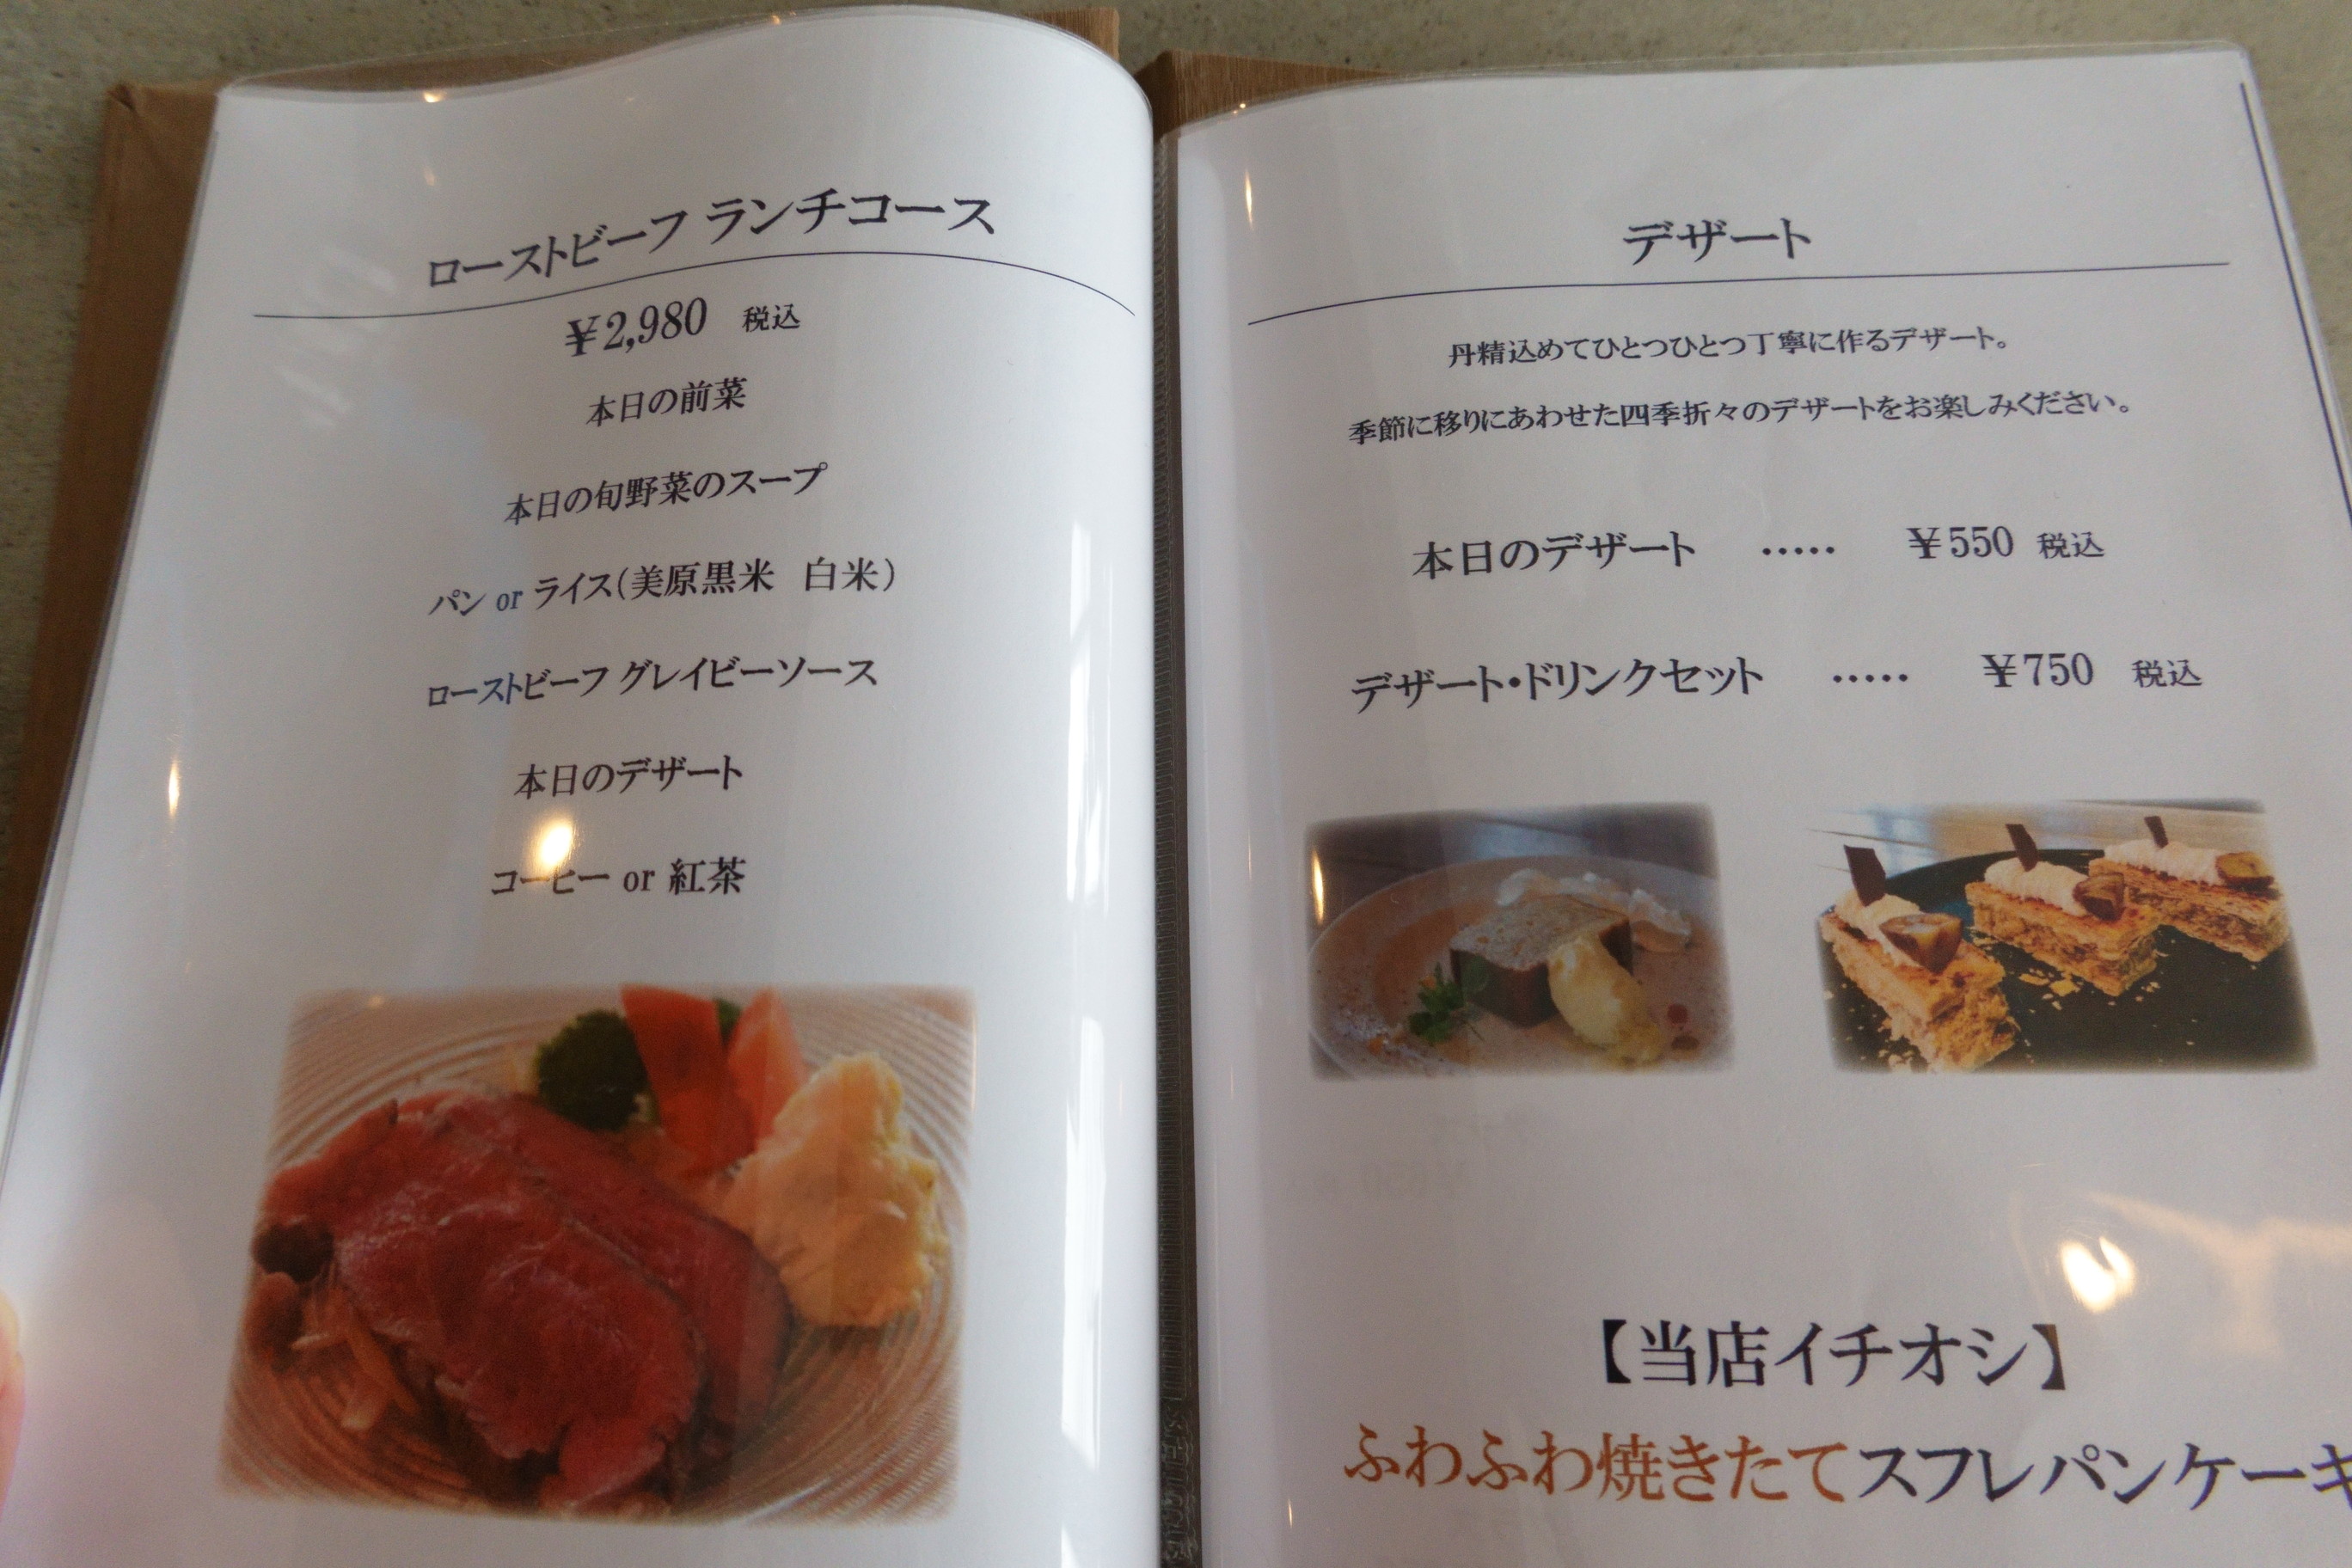 ローストビーフ ランチコース
￥2,980 税込
本日の前菜
本日の旬野菜のスープ
パン or ライス(美原黒米 白米)
ローストビーフ グレイビーソース
本日のデザート
コーヒー or 紅茶
デザート
丹精込めてひとつひとつ丁寧に作るデザート。
季節に移りにあわせた四季折々のデザートをお楽しみください。
本日のデザート ‥‥‥ ￥550 税込
デザート・ドリンクセット ‥‥‥ ￥750 税込
【当店イチオシ】
ふわふわ焼きたてスフレパンケーキ